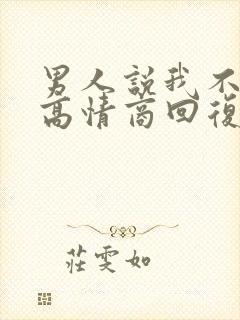 男人說我不
高情商回復
莊雯如